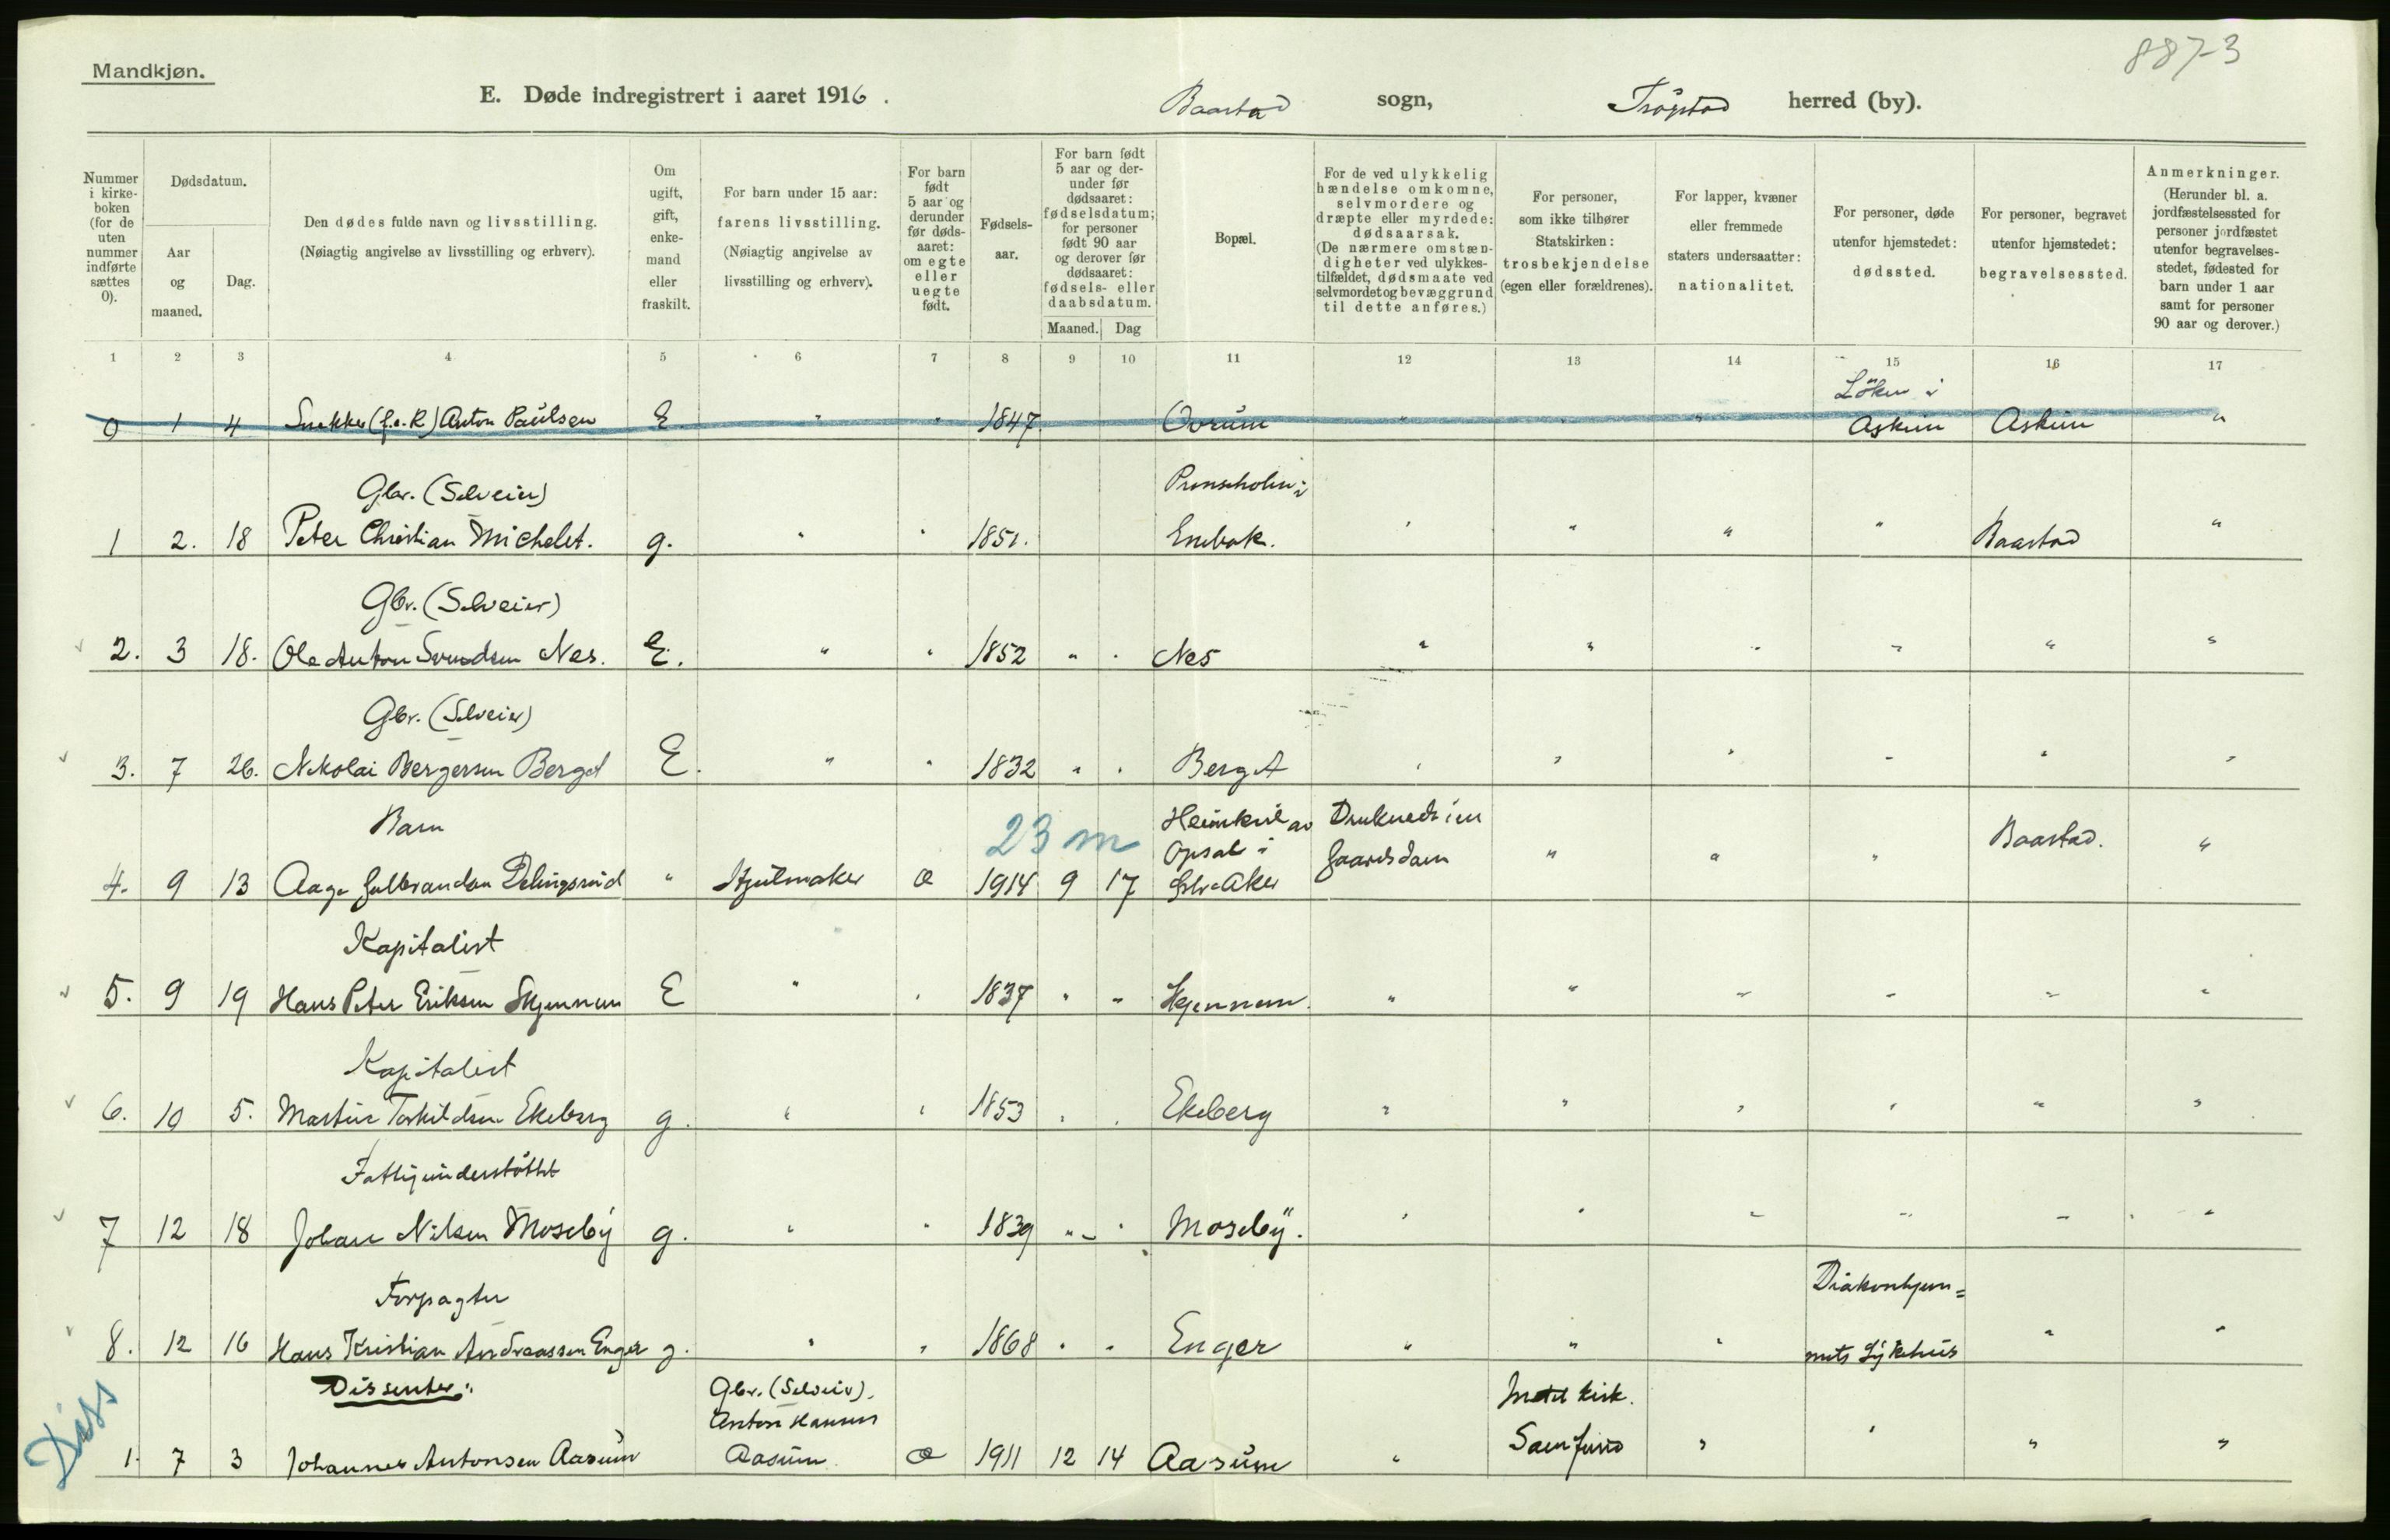 8873
Mandkjøn.
E. Døde indregistrert i aaret 1916.
Baastad sogn, Trögstad herred (by).
Nummer i kirke-boken (for de uten nummer indførte sættes 0).
Dødsdatum.
Aar og maaned.
Dag.
Den dødes fulde navn og livsstilling.
(Nøiagtig angivelse av livsstilling og erhverv).
Om ugift, gift, enke-mand eller fraskilt.
For barn under 15 aar: farens livsstilling.
(Nøiagtig angivelse av livsstilling og erhverv).
For barn født 5 aar og derunder før døds-aaret: om egte eller uegte født.
Fødsels-aar.
For barn født 5 aar og der-under før dødsaaret: fødselsdatum; for personer født 90 aar og derover før dødsaaret: fødsels- eller daabsdatum.
Maaned. Dag
Bopæl.
For de ved ulykkelig hændelse omkomne, selvmordere og dræpte eller myrdede: dødsaarsak.
(De nærmere omstæn-digheter ved ulykkes-tilfældet, dødsmaate ved selvmordet og bevæggrund til dette anføres.)
For personer, som ikke tilhører Statskirken: trosbekjendelse (egen eller forældrenes).
For lapper, kvæner eller fremmede staters undersaatter: nationalitet.
For personer, døde utenfor hjemstedet: dødssted.
For personer, begravet utenfor hjemstedet: begravelsessted.
Anmerkninger.
(Herunder bl. a. jordfæstelsessted for personer jordfæstet utenfor begravelses-stedet, fødested for barn under 1 aar samt for personer 90 aar og derover.)
1 2 3 4 5 6 7 8 9 10 11 12 13 14 15 16 17
Löken i
0 1 4 Snekker (f.e.R) Anton Paulsen E " " 1847. Ovrum " " " Askim Askim "
Gbr. (Selveier) i
1 2. 18 Peter Christian Michelet. g. " " 1851. Enebak. " " " " Baastad "
Gbr. (Selveier)
2. 3 18. Ole Anton Svendsen Nes. E. " " 1852 " " Nes " " " " " "
Gbr. (Selveier)
3. 7 26. Nikolai Bergersen Berget E. " " 1832 " " Berget " " " " " "
Barn 23 m av Druknede i en
Opsal i Gaardsdam Baastad. "
4. 9 13 Aage Gulbrandsen " Hjulmaker e 1914 9 17 Aker " " "
Kapitalist
5. 9 19 Hans Peter Eriksen Skjennum E " " 1837 " " Skjennum. " " " " " "
Kapitalist
6. 10 5. Martin Torkildsen Ekeberg g. " " 1853 " " Ekeberg " " " " " "
Fattigunderstöttet
7 12 18 Johan Nilsen Moseby g. " " 1839 " " Moseby. " " " " " "
Forpagter Diakonhjem=
8. 12 16 Hans Kristian Andreassen Enger g. " " 1868 " " Enger " " " mets Sykehus " "
Diss
Dissenter: Gbr. (Selveier). Metod kirk.
Anton Hansen
1. 7 3 Johannes Antonsen Aasum Aasum e 1911 12 14 Aasum " Samfund " " " "